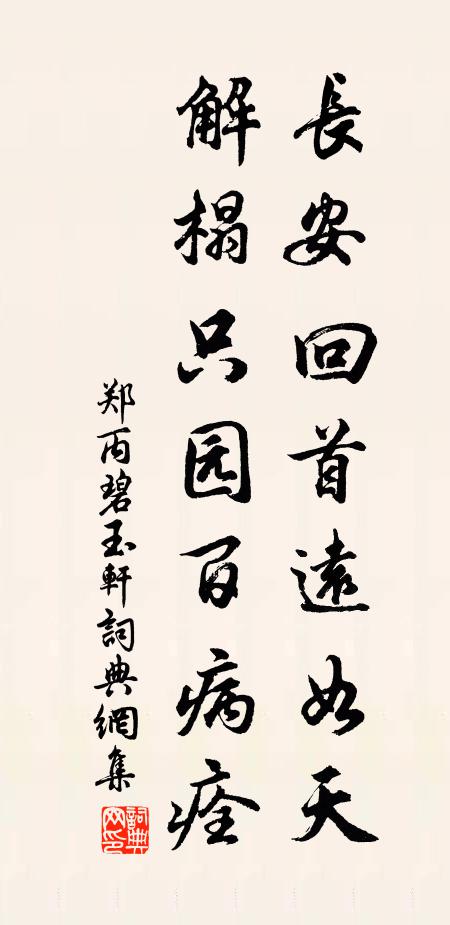 長安回首遠如天
解榻只园百病痊
郑丙碧玉軒詞典網集
詞典网印